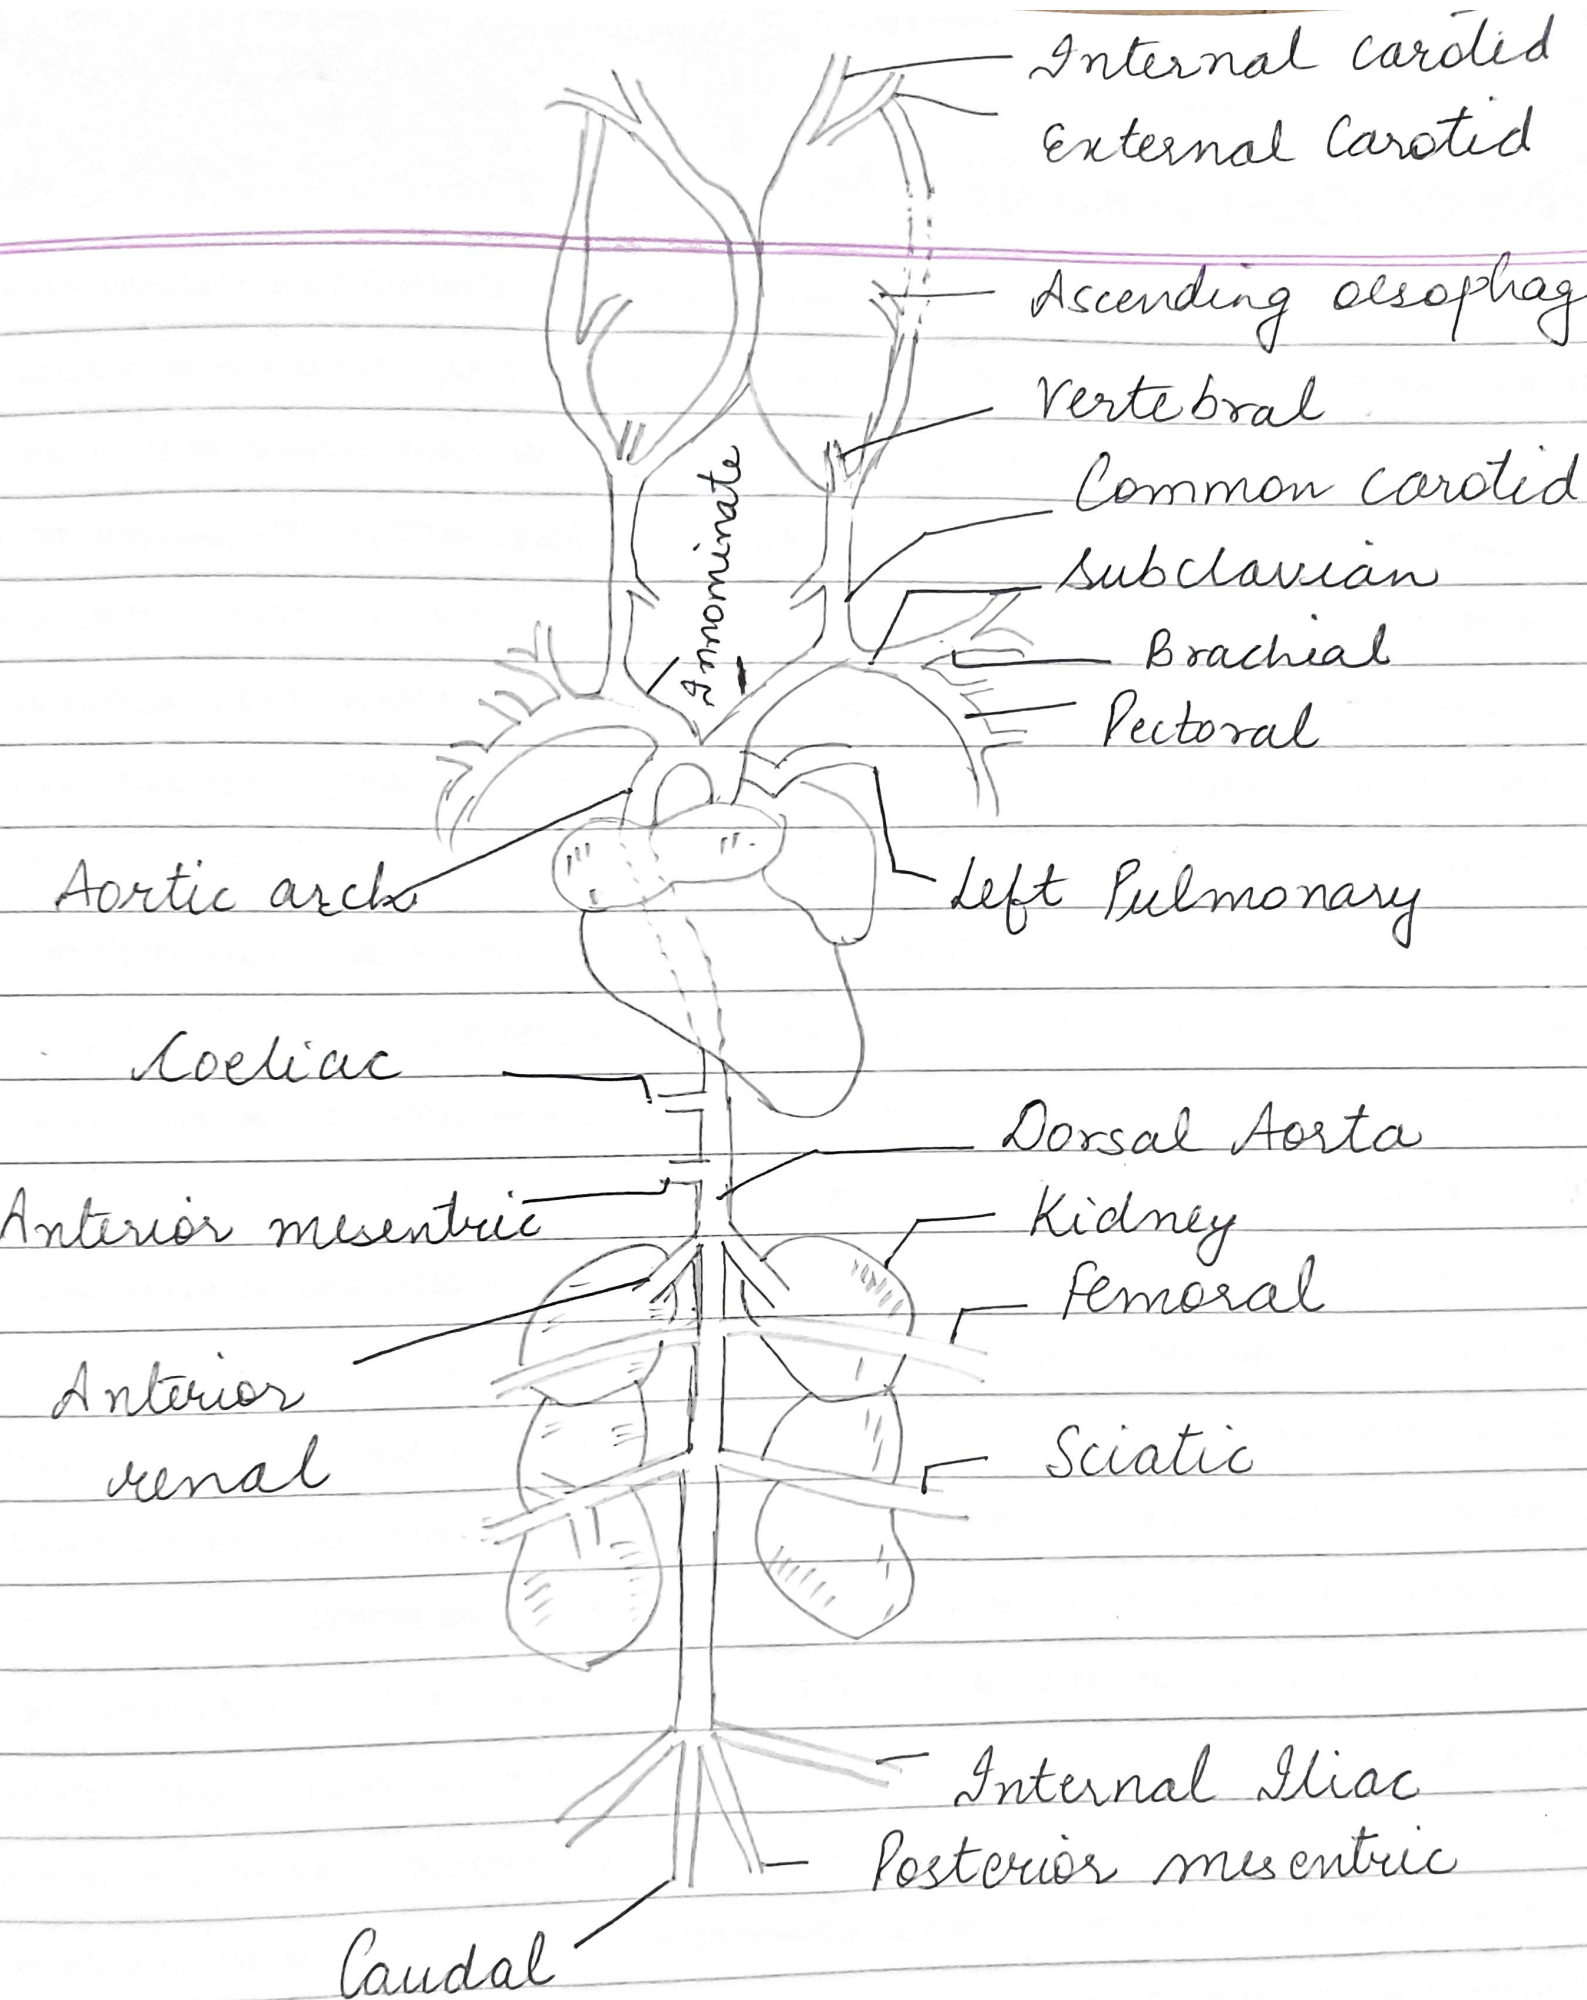 Internal carotid
External Carotid
Ascending oesophag
Vertebral
Common carotid
Innominate
subclavian
Brachial
Pectoral
Aortic arch
Left Pulmonary
Coeliac
Dorsal Aorta
Anterior mesentric
Kidney
Femoral
Anterior
renal
Sciatic
Internal Iliac
Posterior mesentric
Caudal